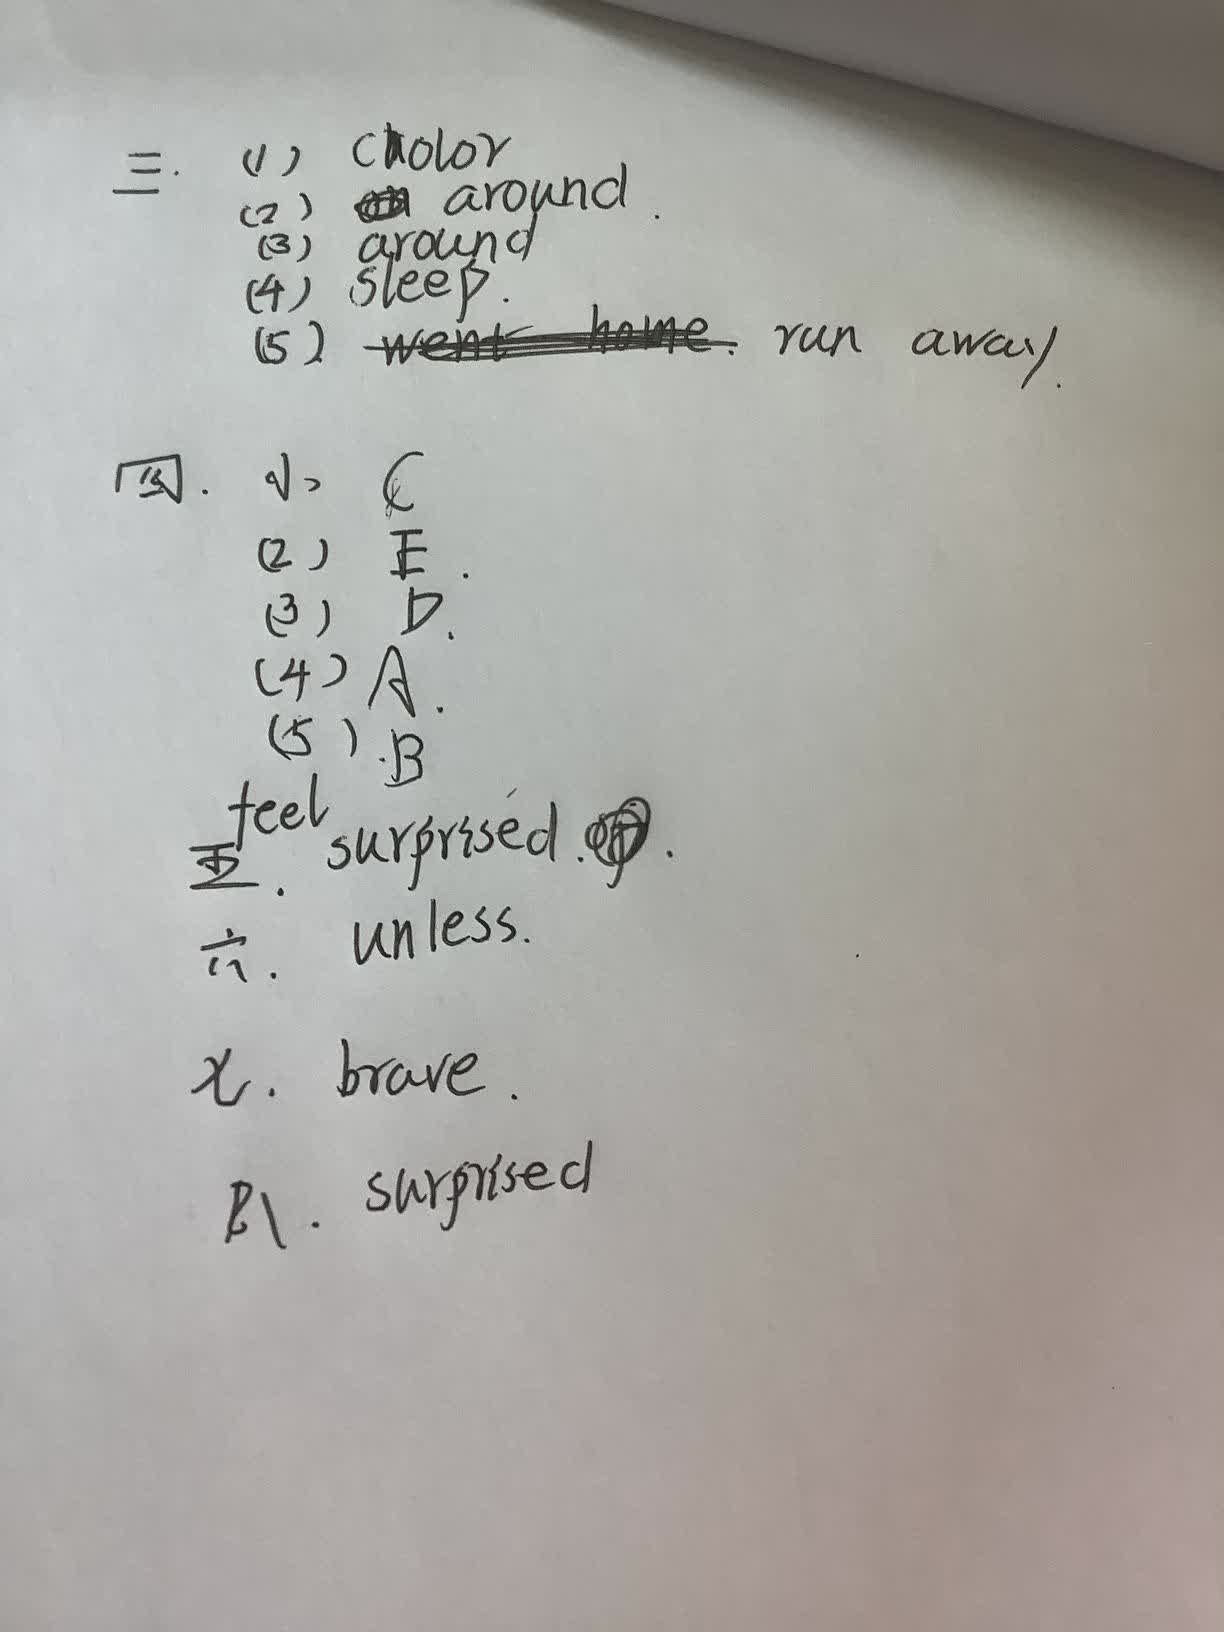 三. (1) Cholor
(2) around.
(3) around
(4) sleep.
(5) went home. run away.
四. (1) C
(2) E.
(3) D.
(4) A.
(5). B
feel
五. surprised.
六. unless.
七. brave.
八. surprised